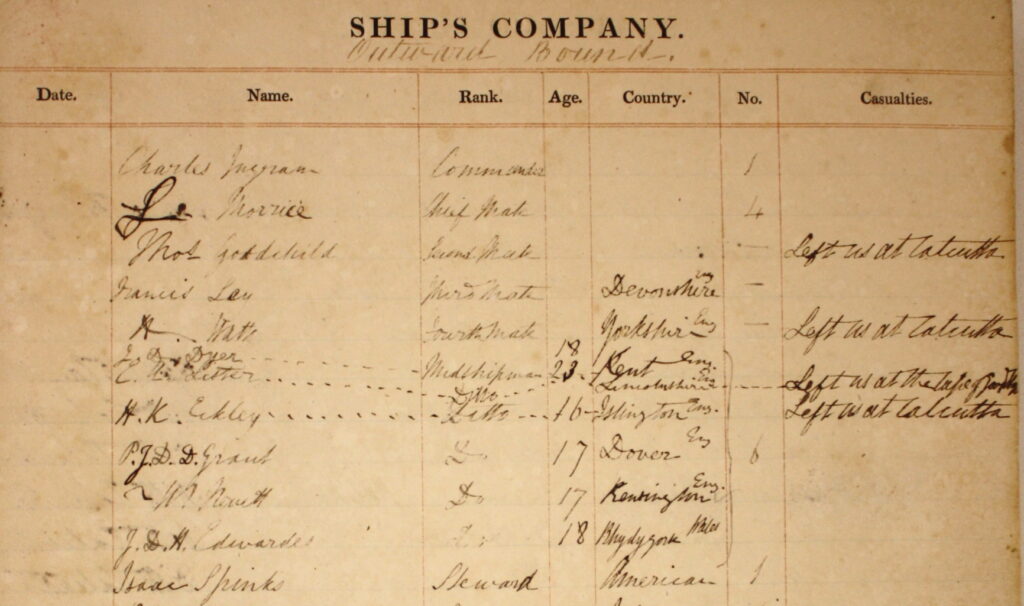 SHIP'S COMPANY.
Outward Bound.
Date. Name. Rank. Age. Country. No. Casualties.
Charles Ingram Commander 1
Morrice Chief Mate 4
Thos Goodchild Second Mate — Left us at Calcutta
Francis Lay Third Mate Devonshire Eng —
H. Watts Fourth Mate Yorkshire Eng — Left us at Calcutta
J. D. Dyer Midshipman 18 Kent Eng
C. W. Litter Ditto 23 Lincolnshire Eng Left us at the Cape of
H. K. Eckley Ditto 16 Islington Eng. Left us at Calcutta
P. J. D. D. Grant Do 17 Dover Eng 6
Wm Do 17 Kensington Eng
J. D. H. Edwardes Do 18 Rhydygors Wales
Isaac Spinks Steward American 1